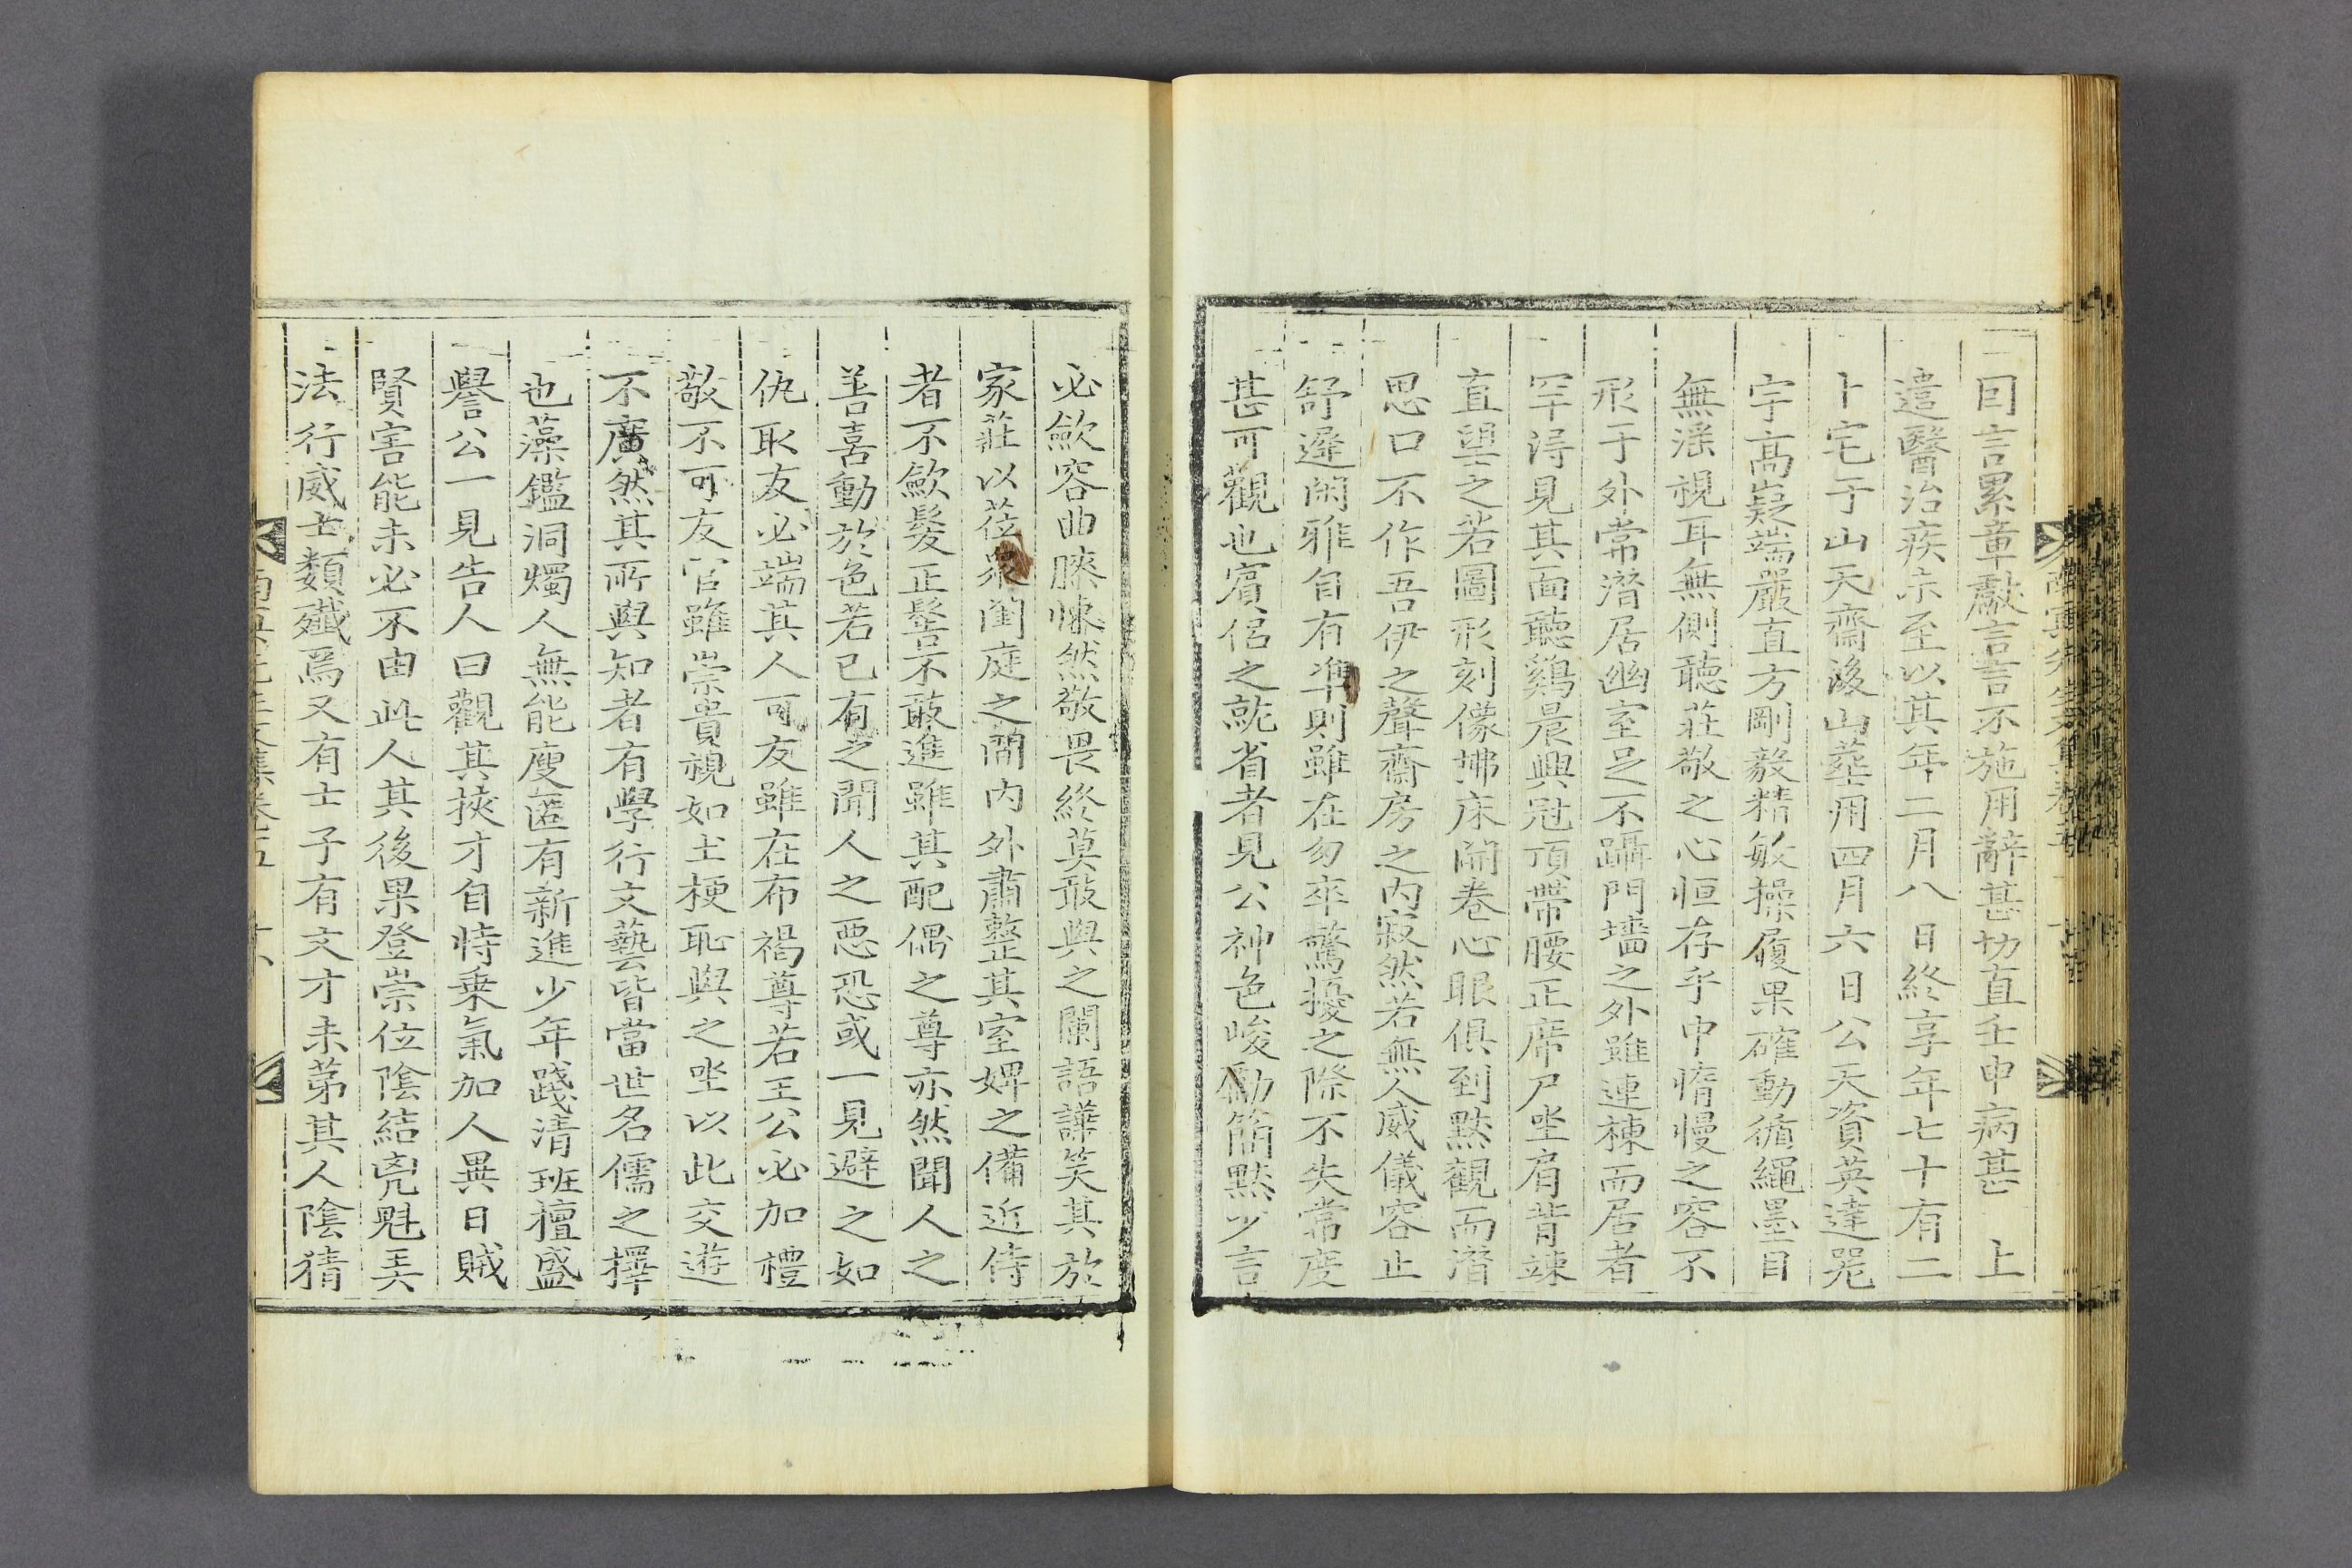 囙言累章獻言言不施用辭甚切直壬申病甚 上
遣醫治疾未至以其年二月八日終享年七十有二
卜宅于山天齋後山葬用四月六日公天資英達器
宇高嶷端嚴直方剛毅精敏操履果確動循繩墨目
無淫視耳無側聽莊敬之心恒存乎中惰慢之容不
形于外常潛居幽室足不躡門墻之外雖連棟而居者
罕得見其面聽鷄晨興冠頂帶腰正席尸坐肩背竦
直望之若圖形刻像拂床開卷心眼俱到默觀而潛
思口不作吾伊之聲齋房之內寂然若無人威儀容止
舒遲閑雅自有準則雖在匆卒驚擾之際不失常度
甚可觀也賓侶之就省者見公神色峻勵簡默少言
必歛容曲膝悚然敬畏終莫敢與之闌語譁笑其於
家莊以莅衆閨庭之間內外肅整其室婢之備近侍
者不歛髮正髻不敢進雖其配偶之尊亦然聞人之
善喜動於色若已有之聞人之惡恐或一見避之如
仇取友必端其人可友雖在布褐尊若王公必加禮
敬不可友官雖崇貴視如土梗恥與之坐以此交遊
不廣然其所與知者有學行文藝皆當世名儒之擇
也藻鑑洞燭人無能廋匿有新進少年踐清班擅盛
譽公一見告人曰觀其挾才自恃乗氣加人異日賊
賢害能未必不由此人其後果登崇位陰結兇魁弄
法行威士類殲焉又有士子有文才未第其人陰猜
南冥先生文集卷之五 十八